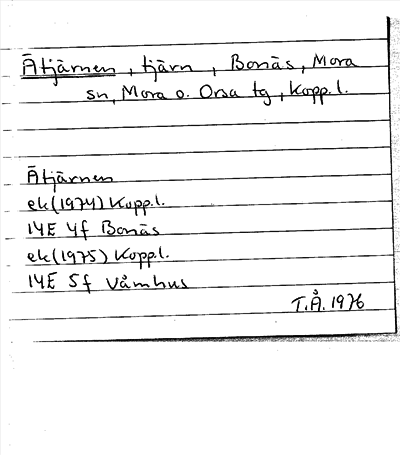 Åtjärnen, tjärn, Bonäs, Mora
sn, Mora o. Orsa tg, Kopp. l.
Åtjärnen
ek (1974) Kopp. l.
14E 4f Bonäs
ek (1975) Kopp. l.
14E 5f Våmhus
T.Å. 1976